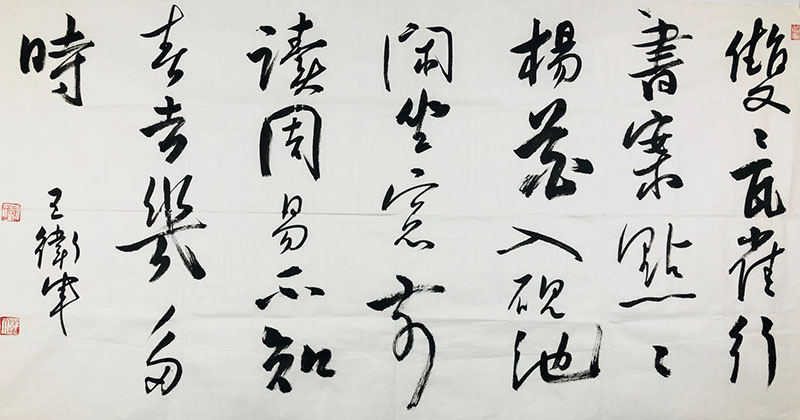 雙〻瓦雀行
書案點〻
楊花入硯池
閑坐窓前
讀周易不知
春去幾多
時
王衛軍